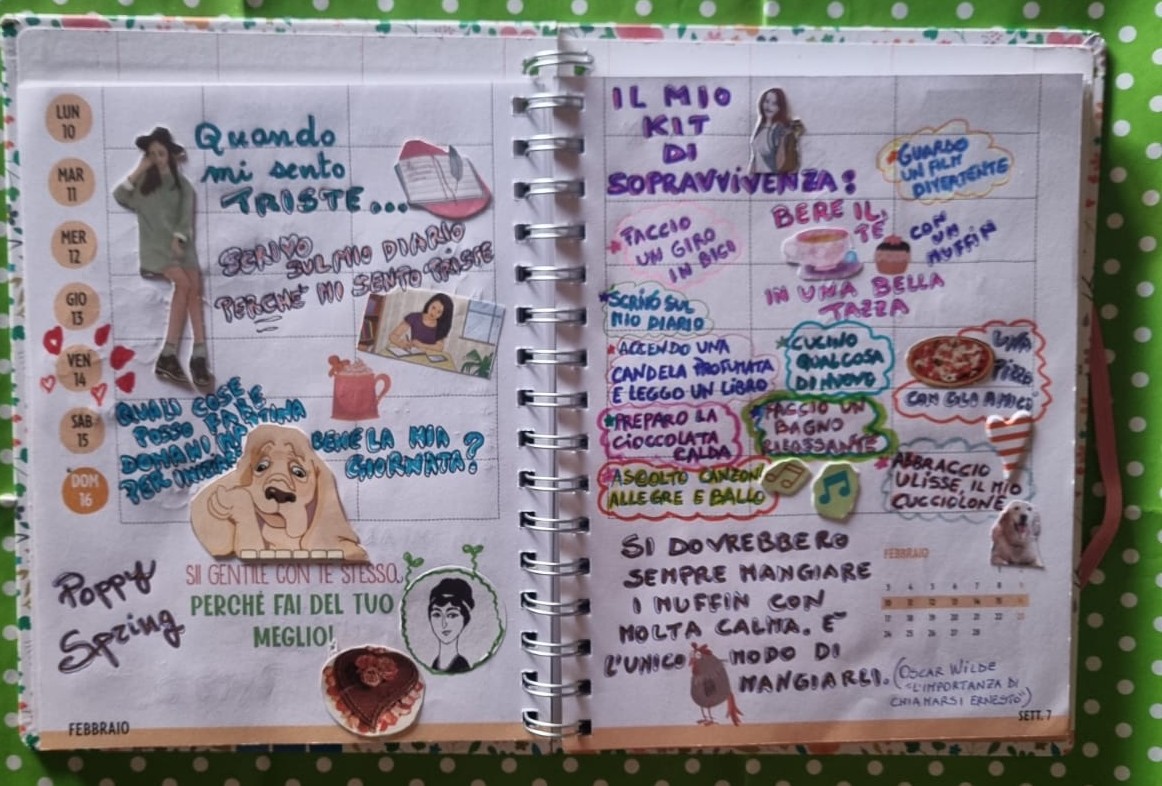 LUN
10
MAR
11
MER
12
GIO
13
VEN
14
SAB
15
DOM
16
Quando
mi sento
TRISTE...
SCRIVO
SUL MIO DIARIO
PERCHÉ MI SENTO TRISTE
QUALI COSE E
POSSO FAR
DOMANI MATTINA
PER INIZIARE
BENE LA MIA
GIORNATA?
Poppy
Spring
SII GENTILE CON TE STESSO,
PERCHÉ FAI DEL TUO
MEGLIO!
FEBBRAIO
IL MIO
KIT
DI
SOPRAVVIVENZA:
GUARDO
UN FILM
DIVERTENTE
FACCIO
UN GIRO
IN BICI
BERE IL
TÈ
CON
UN
MUFFIN
IN UNA BELLA
TAZZA
SCRIVO SUL
MIO DIARIO
ACCENDO UNA
CANDELA PROFUMATA
E LEGGO UN LIBRO
CUCINO
QUALCOSA
DI NUOVO
UNA
PIZZA
CON GLI AMICI
PREPARO LA
CIOCCOLATA
CALDA
FACCIO UN
BAGNO
RILASSANTE
ASCOLTO CANZONI
ALLEGRE E BALLO
ABBRACCIO
ULISSE, IL MIO
CUCCIOLONE
SI DOVREBBERO
SEMPRE MANGIARE
I MUFFIN CON
MOLTA CALMA. È
L'UNICO MODO DI
MANGIARLI.
(OSCAR WILDE
"L'IMPORTANZA DI
CHIAMARSI ERNESTO")
FEBBRAIO
3 4 5 6 7 8
10 11 12 13 14 15
17 18 19 20 21 22 23
24 25 26 27 28
SETT. 7